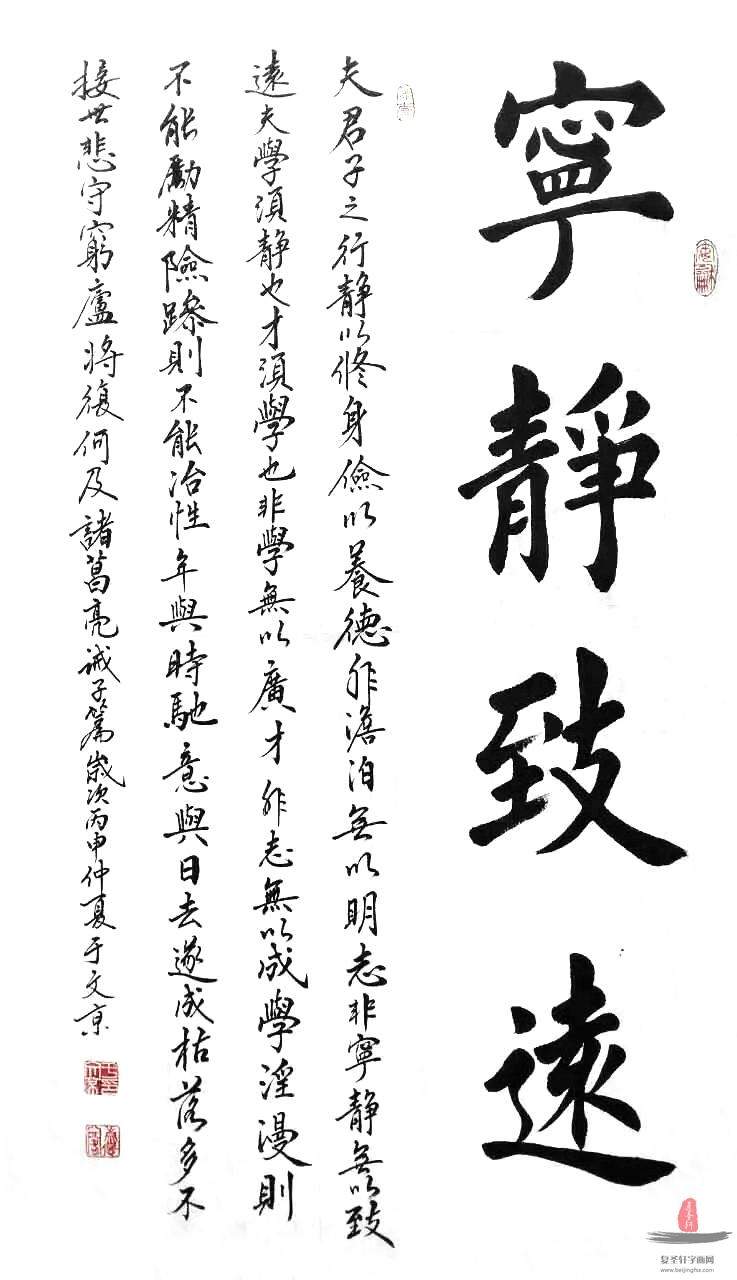 寧靜致遠
夫君子之行静以修身儉以養德非澹泊無以明志非寧静無以致
遠夫學須静也才須學也非學無以廣才非志無以成學淫漫則
不能勵精險躁則不能冶性年與時馳意與日去遂成枯落多不
接世悲守窮廬將復何及諸葛亮誡子篇歲次丙申仲夏于文京
复圣轩字画网
www.beijingfsx.com